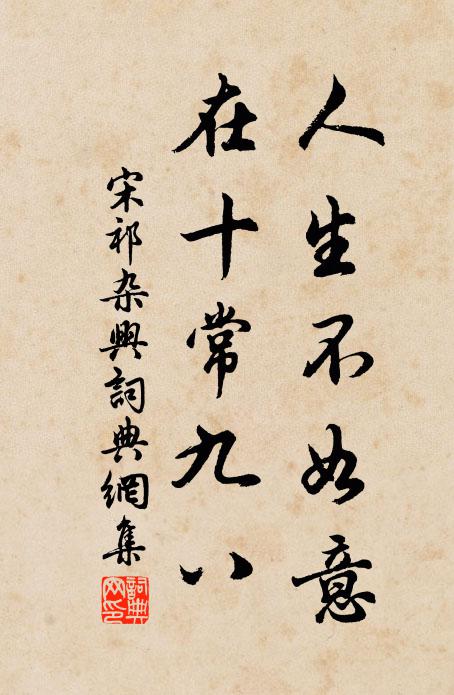 人生不如意
在十常九八
宋祁杂興詞典網集
詞典网印